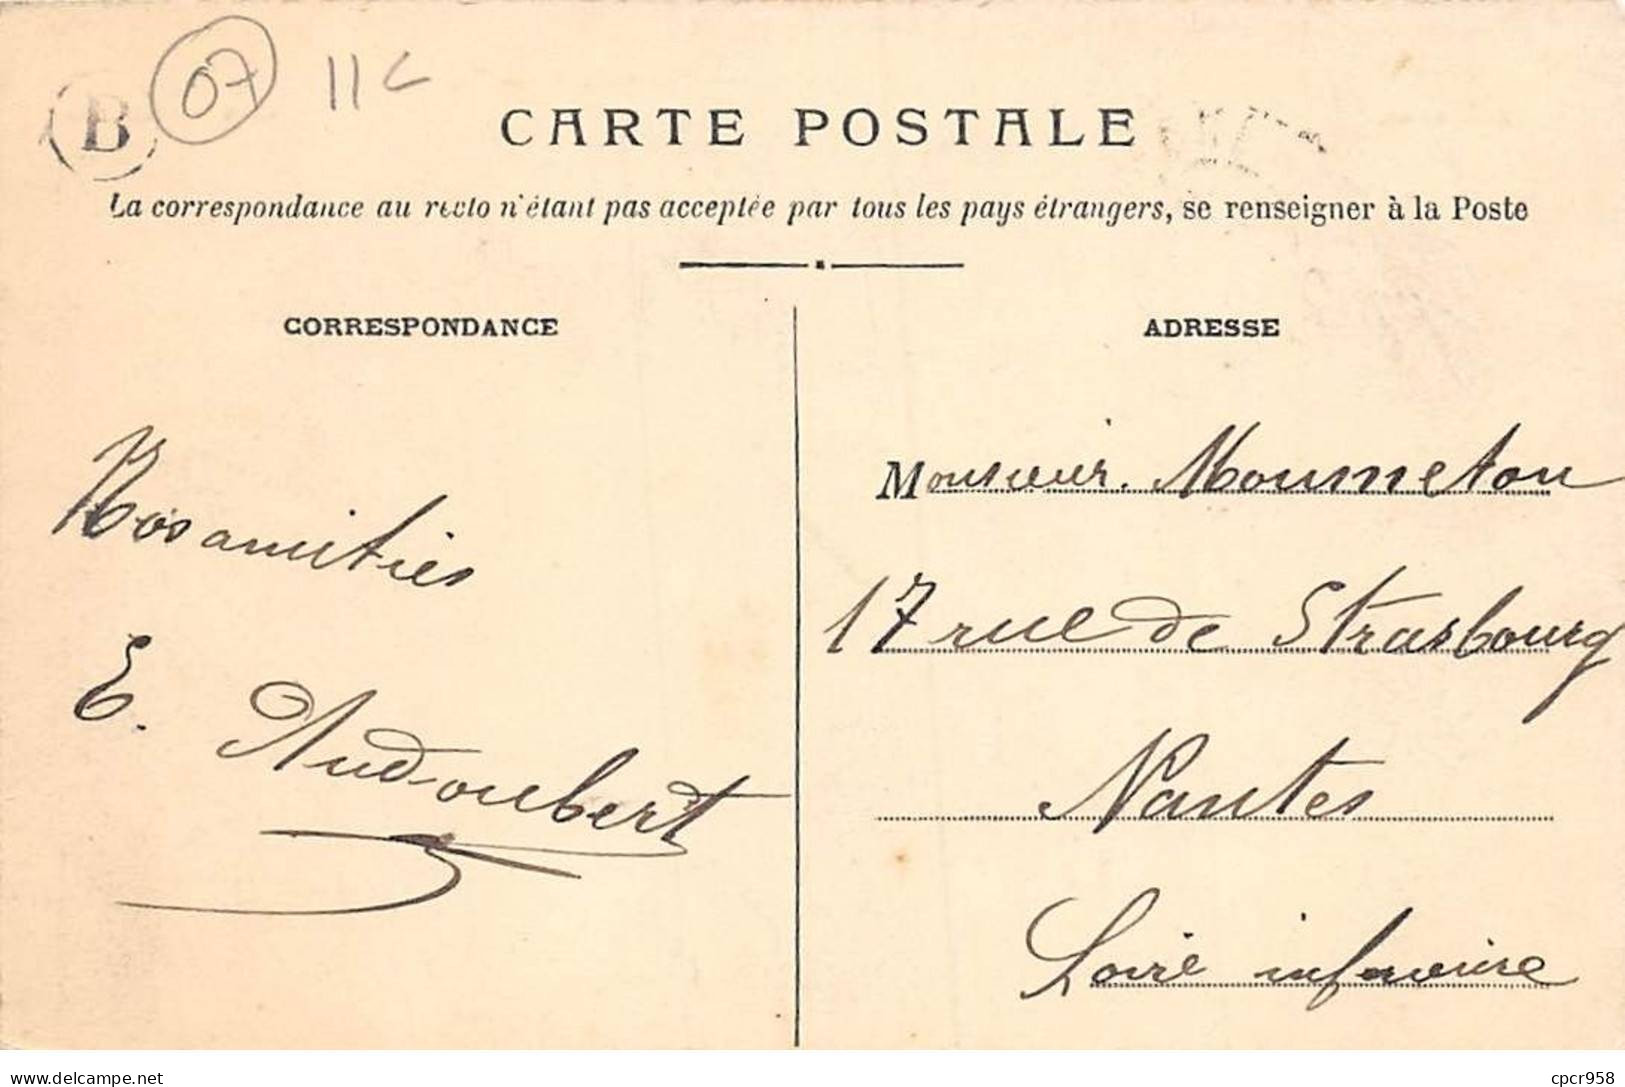 B
07
11c
CARTE POSTALE
La correspondance au recto n'étant pas acceptée par tous les pays étrangers, se renseigner à la Poste
CORRESPONDANCE
Nos amitiés
E. Audoubert
ADRESSE
Monsieur. Moumeton
17 rue de Strasbourg
Nantes
Loire inferieure
www.delcampe.net
cpcr958